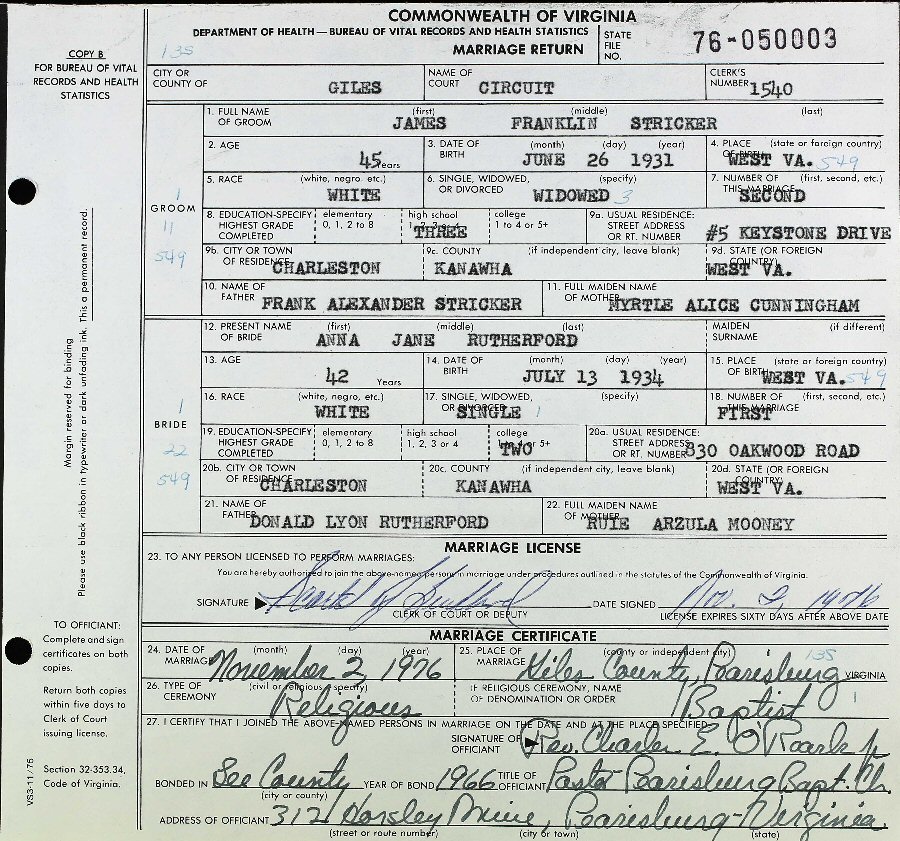 COMMONWEALTH OF VIRGINIA
DEPARTMENT OF HEALTH — BUREAU OF VITAL RECORDS AND HEALTH STATISTICS
MARRIAGE RETURN
STATE FILE NO. 76-050003
135
COPY B
FOR BUREAU OF VITAL
RECORDS AND HEALTH
STATISTICS
CITY OR COUNTY OF GILES NAME OF COURT CIRCUIT CLERK'S NUMBER 1540
1. FULL NAME OF GROOM (first) JAMES (middle) FRANKLIN (last) STRICKER
2. AGE 45 Years 3. DATE OF BIRTH (month) JUNE (day) 26 (year) 1931 4. PLACE OF BIRTH (state or foreign country) WEST VA. 549
5. RACE (white, negro, etc.) WHITE 6. SINGLE, WIDOWED, OR DIVORCED (specify) WIDOWED 3 7. NUMBER OF THIS MARRIAGE (first, second, etc.) SECOND
GROOM
1
11
549
8. EDUCATION-SPECIFY HIGHEST GRADE COMPLETED elementary 0, 1, 2 to 8 high school 1, 2, 3 or 4 THREE college 1 to 4 or 5+ 9a. USUAL RESIDENCE: STREET ADDRESS OR RT. NUMBER #5 KEYSTONE DRIVE
9b. CITY OR TOWN OF RESIDENCE CHARLESTON 9c. COUNTY (if independent city, leave blank) KANAWHA 9d. STATE (OR FOREIGN COUNTRY) WEST VA.
10. NAME OF FATHER FRANK ALEXANDER STRICKER 11. FULL MAIDEN NAME OF MOTHER MYRTLE ALICE CUNNINGHAM
12. PRESENT NAME OF BRIDE (first) ANNA (middle) JANE (last) RUTHERFORD MAIDEN SURNAME (if different)
13. AGE 42 Years 14. DATE OF BIRTH (month) JULY (day) 13 (year) 1934 15. PLACE OF BIRTH (state or foreign country) WEST VA. 549
16. RACE (white, negro, etc.) WHITE 17. SINGLE, WIDOWED, OR DIVORCED (specify) SINGLE 1 18. NUMBER OF THIS MARRIAGE (first, second, etc.) FIRST
BRIDE
1
22
549
19. EDUCATION-SPECIFY HIGHEST GRADE COMPLETED elementary 0, 1, 2 to 8 high school 1, 2, 3 or 4 college 1 to 4 or 5+ TWO 20a. USUAL RESIDENCE: STREET ADDRESS OR RT. NUMBER 830 OAKWOOD ROAD
20b. CITY OR TOWN OF RESIDENCE CHARLESTON 20c. COUNTY (if independent city, leave blank) KANAWHA 20d. STATE (OR FOREIGN COUNTRY) WEST VA.
21. NAME OF FATHER DONALD LYON RUTHERFORD 22. FULL MAIDEN NAME OF MOTHER RUIE ARZULA MOONEY
Margin reserved for binding
Please use black ribbon in typewriter or dark unfading ink. This a permanent record.
MARRIAGE LICENSE
23. TO ANY PERSON LICENSED TO PERFORM MARRIAGES:
You are hereby authorized to join the above-named persons in marriage under procedures outlined in the statutes of the Commonwealth of Virginia.
SIGNATURE DATE SIGNED Nov. 2, 1976
CLERK OF COURT OR DEPUTY LICENSE EXPIRES SIXTY DAYS AFTER ABOVE DATE
MARRIAGE CERTIFICATE
TO OFFICIAL:
Complete and sign
certificates on both
copies.
Return both copies
within five days to
Clerk of Court
issuing license.
Section 32-353.34,
Code of Virginia.
VS3-11/75
24. DATE OF MARRIAGE (month) (day) (year) November 2, 1976 25. PLACE OF MARRIAGE (county or independent city) Giles County, Pearisburg 135 VIRGINIA
26. TYPE OF CEREMONY (civil or religious - specify) Religious IF RELIGIOUS CEREMONY, NAME OF DENOMINATION OR ORDER Baptist 1
27. I CERTIFY THAT I JOINED THE ABOVE-NAMED PERSONS IN MARRIAGE ON THE DATE AND AT THE PLACE SPECIFIED.
SIGNATURE OF OFFICIANT Rev. Charles E. O'Roark Jr
BONDED IN Lee County (city or county) YEAR OF BOND 1966 TITLE OF OFFICIANT Pastor Pearisburg Bapt. Ch.
ADDRESS OF OFFICIANT 312 Horsley Drive, Pearisburg - Virginia
(street or route number) (city or town) (state)